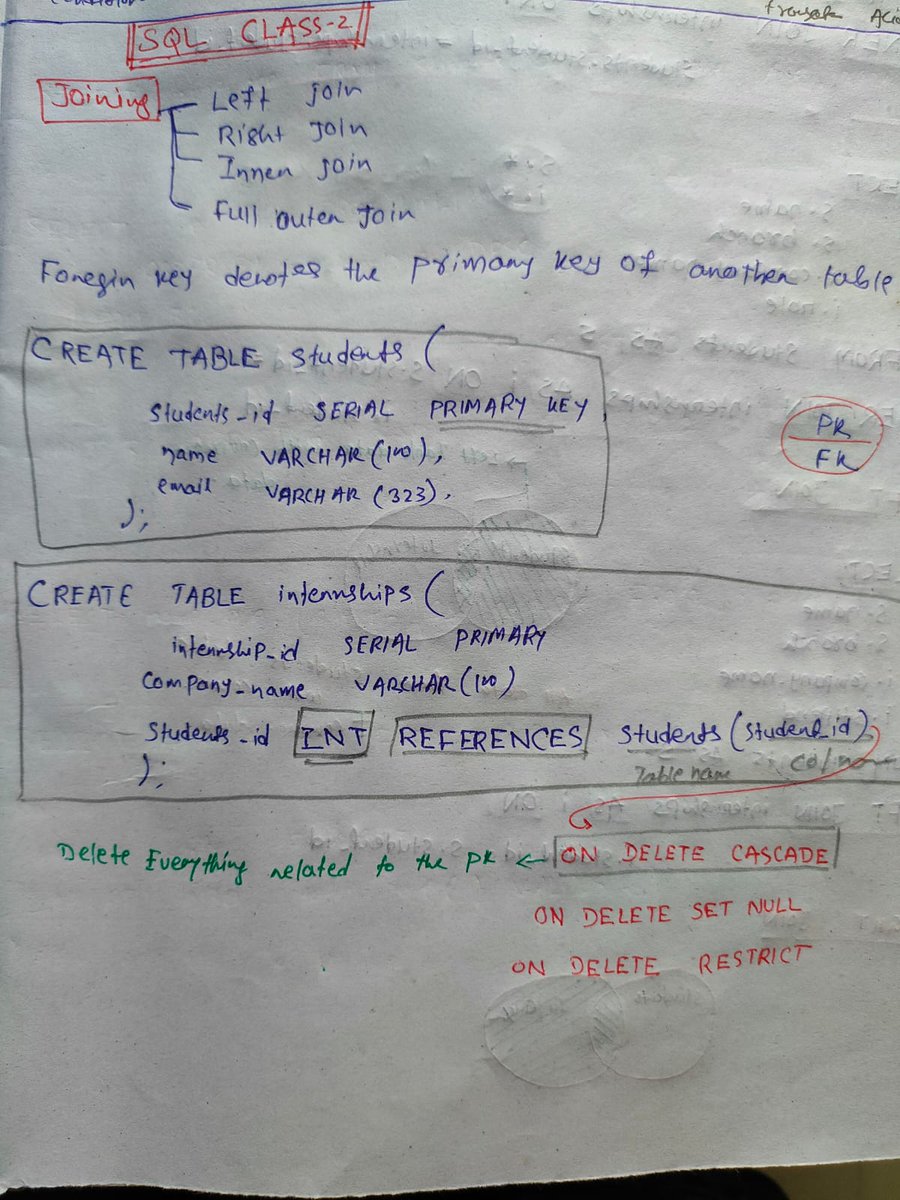 SQL CLASS-2
Joining
Left join
Right join
Innen join
Full outen join
Foregin key denotes the primany key of anothen table
CREATE TABLE students (
Students_id SERIAL PRIMARY KEY,
name VARCHAR(100),
email VARCHAR (323),
);
PK
FK
CREATE TABLE intennships (
intenship_id SERIAL PRIMARY
Company_name VARCHAR(100)
Students_id INT REFERENCES students (student_id),
Table name
);
ON DELETE CASCADE
Delete Everything nelated to the PK ←
ON DELETE SET NULL
ON DELETE RESTRICT